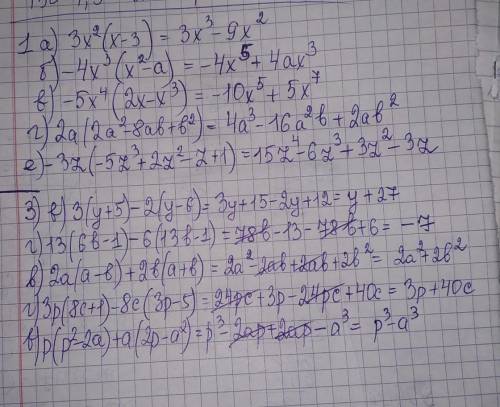 1 а) 3x²(x-3) = 3x³ - 9x²
б) -4x³(x²-a) = -4x⁵ + 4ax³
в) -5x⁴(2x-x³) = -10x⁵ + 5x⁷
г) 2a(2a²-8ab+b²) = 4a³ - 16a²b + 2ab²
е) -3z(-5z³+2z²-z+1) = 15z⁴ - 6z³ + 3z² - 3z
3) в) 3(y+5) - 2(y-6) = 3y+15-2y+12 = y+27
г) 13(6b-1) - 6(13b-1) = 78b-13-78b+6 = -7
в) 2a(a-b) + 2b(a+b) = 2a²-2ab+2ab+2b² = 2a²+2b²
г) 3p(8c+1) - 8c(3p-5) = 24pc+3p-24pc+40c = 3p+40c
в) p(p²-2a) + a(2p-a²) = p³-2ap+2ap-a³ = p³-a³